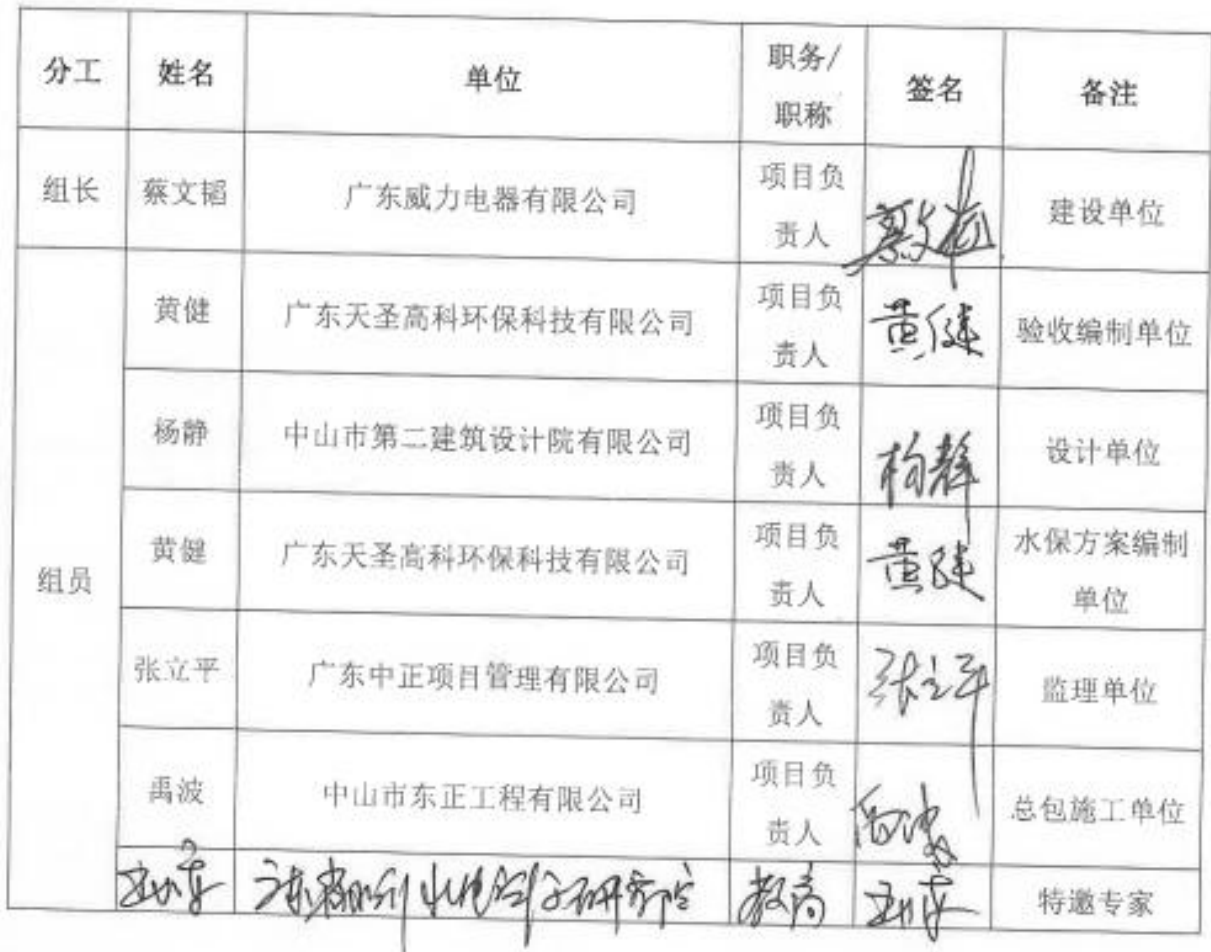 分工 姓名 单位 职务/职称 签名 备注
组长 蔡文韬 广东威力电器有限公司 项目负责人 蔡文韬 建设单位
组员 黄健 广东天圣高科环保科技有限公司 项目负责人 黄健 验收编制单位
杨静 中山市第二建筑设计院有限公司 项目负责人 杨静 设计单位
黄健 广东天圣高科环保科技有限公司 项目负责人 黄健 水保方案编制单位
张立平 广东中正项目管理有限公司 项目负责人 张立平 监理单位
禹波 中山市东正工程有限公司 项目负责人 禹波 总包施工单位
广东省水利水电科学研究院 教高 特邀专家